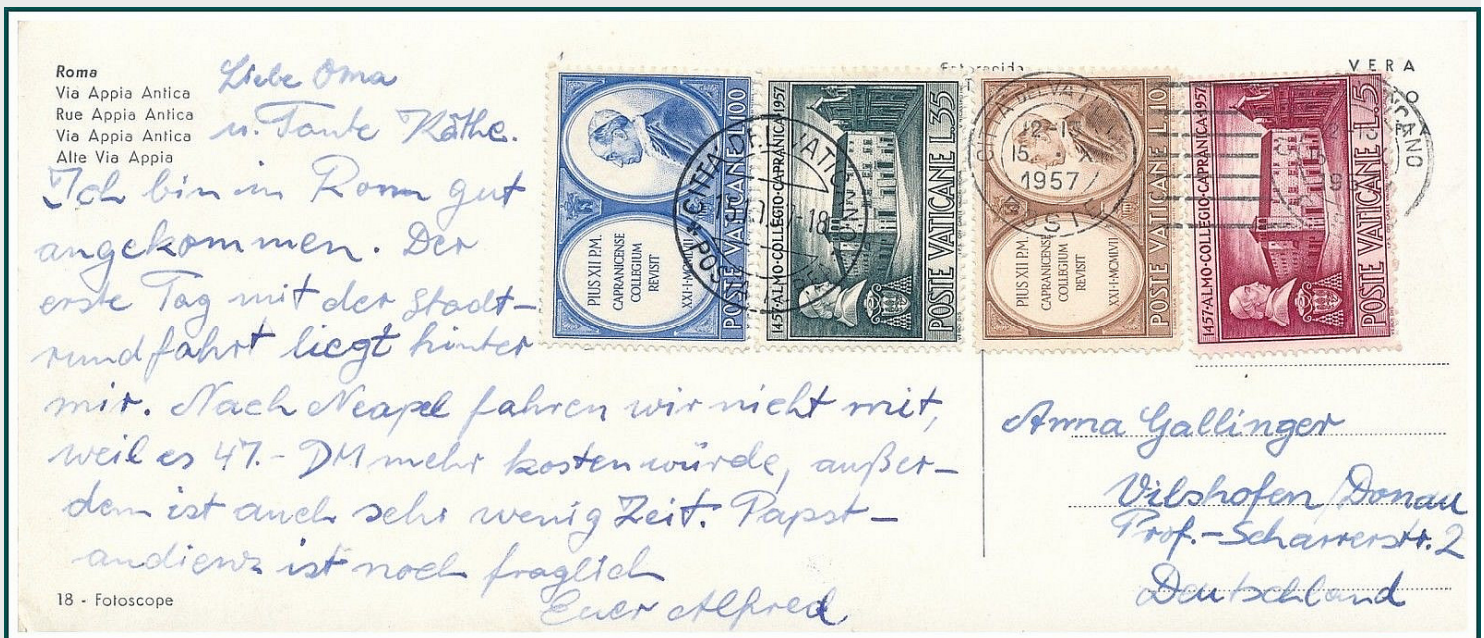 Roma
Via Appia Antica
Rue Appia Antica
Via Appia Antica
Alte Via Appia
Liebe Oma
u. Tante Käthe.
Ich bin in Rom gut
angekommen. Der
erste Tag mit der Stadt-
rundfahrt liegt hinter
mir. Nach Neapel fahren wir nicht mit,
weil es 47.- DM mehr kosten würde, außer-
dem ist auch sehr wenig Zeit. Papst-
audienz ist noch fraglich
Euer Alfred
18 - Fotoscope
PIUS XII P.M.
CAPRANICENSE
COLLEGIUM
REVISIT
XXI·I·MCMLVII
POSTE VATICANE L.100
1457·ALMO·COLLEGIO·CAPRANICA·1957
POSTE VATICANE L.35
CITTÀ DEL VATICANO
POSTE
PIUS XII P.M.
CAPRANICENSE
COLLEGIUM
REVISIT
XXI·I·MCMLVII
POSTE VATICANE L.10
CITTÀ DEL VATICANO
1957
POSTE
1457·ALMO·COLLEGIO·CAPRANICA·1957
POSTE VATICANE L.5
VERA
Anna Gallinger
Vilshofen/Donau
Prof.-Scharrerstr. 2
Deutschland